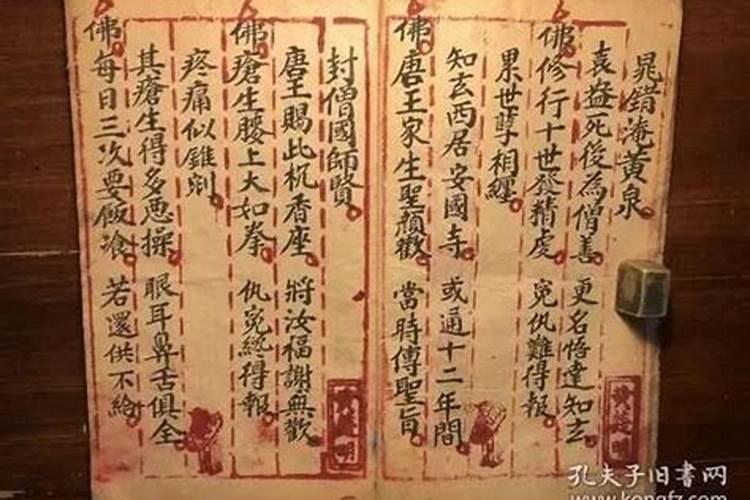 晁錯淹黃泉
袁盎死後為僧善 更名悟達知玄
佛修行十世發精虔 寃仇難得報
累世孽相纏
知玄西居安國寺 或通十二年間
佛唐王家生聖顏歡 當時傳聖旨
封僧國師賢
唐王賜此杌香座 將汝福謝無歡
佛瘡生腰上大如拳 仇寃終得報
疼痛似錐剜
其瘡生得多悪操 眼耳鼻舌俱全
佛每日三次要飯飡 若還供不給
孔夫子旧书网